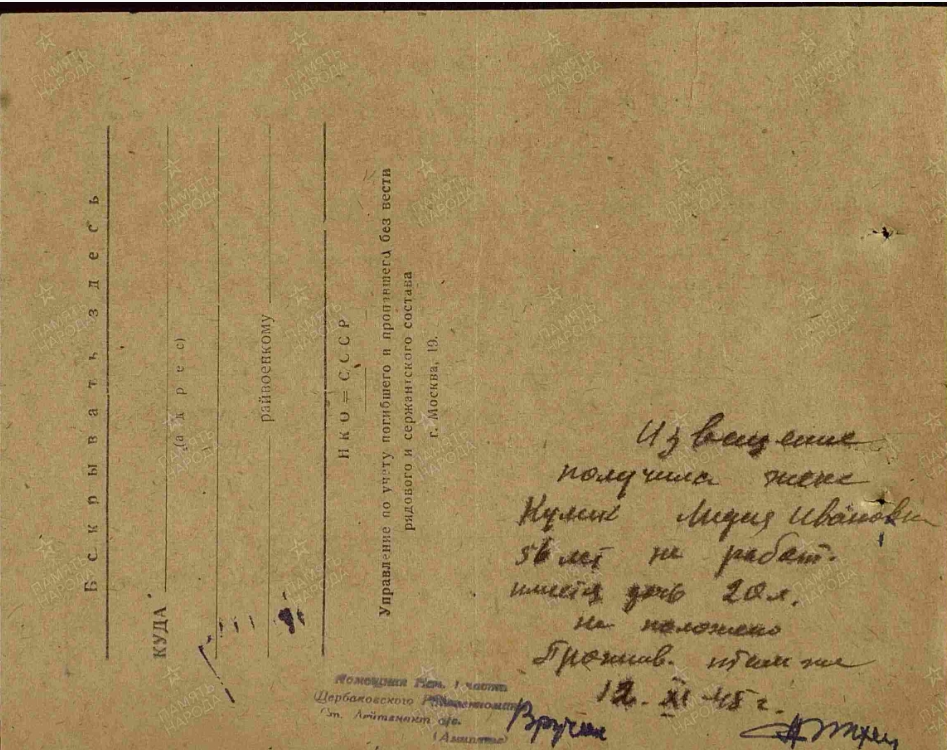 Вскрывать здесь
КУДА
(адрес)
райвоенкому
НКО=СССР
Управление по учету погибшего и пропавшего без вести
рядового и сержантского состава
г. Москва, 19.
Извещение
получила жена
Кулик Лидия Ивановна
56 лет не работ.
имеется дочь 20 л.
не положено
Прожив. там же
12. XI 45 г.
Вручил
Помощник Нач. 1 части
Щербаковского
Ст. Лейтенант а/с.
ПАМЯТЬ НАРОДА